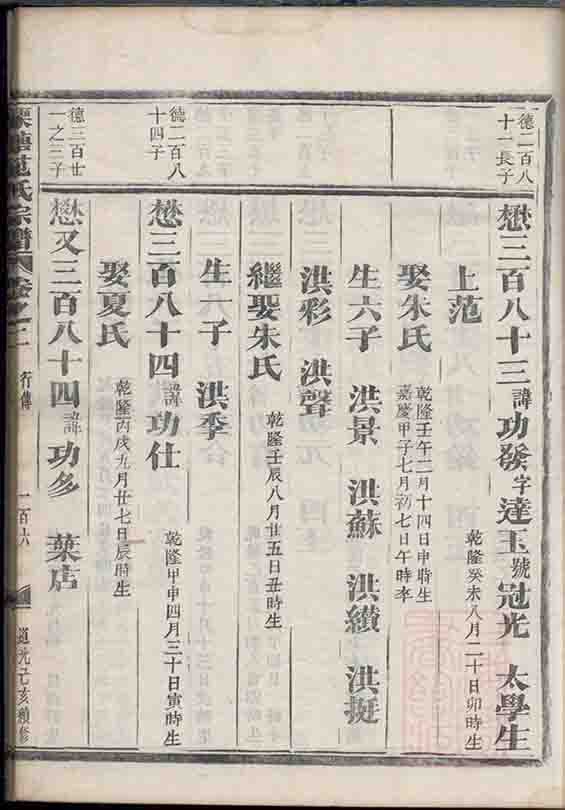 德二百八
十一長子
懋三百八十三諱功發字達玉號冠光 太學生
上范 乾隆癸未八月二十日卯時生
娶朱氏 乾隆壬午二月十四日申時生
嘉慶甲子七月初七日午時卒
生六子 洪景 洪蘇 洪纘 洪挺
洪彩 洪聲
繼娶朱氏 乾隆壬辰八月廿五日丑時生
生一子 洪季
德二百八
十四子
懋三百八十四諱功仕 乾隆甲申四月三十日寅時生
娶夏氏 乾隆丙戌九月廿七日辰時生
德三百廿
一之三子
懋又三百八十四諱功多 葉店
范氏宗譜 卷之二 行傳 一百六 道光己亥續修